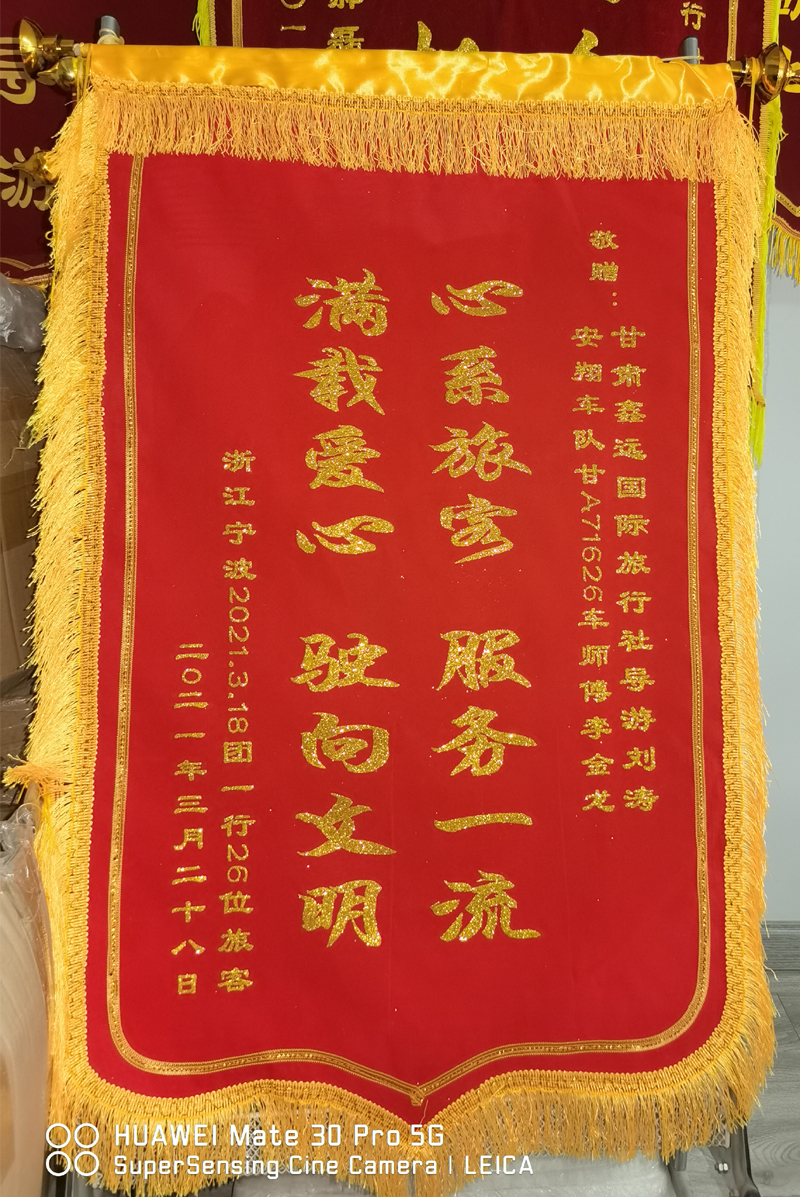 敬赠：
甘肃鑫远国际旅行社导游刘涛
安翔车队甘A71626车师傅李金龙
心系旅客 服务一流
满载爱心 驶向文明
浙江宁波2021.3.18团一行26位旅客
二〇二一年三月二十八日
HUAWEI Mate 30 Pro 5G
SuperSensing Cine Camera | LEICA